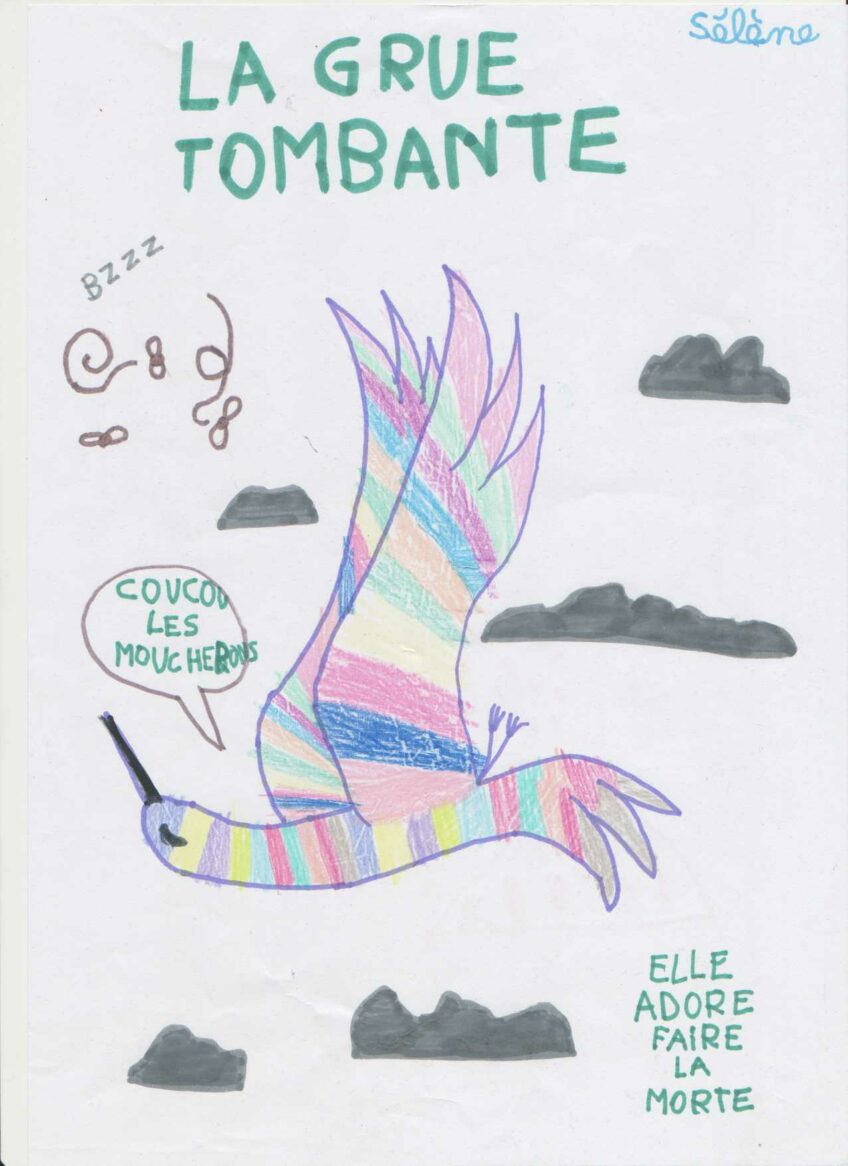 Sélène
LA GRUE
TOMBANTE
BZZZ
COUCOU
LES
MOUCHERONS
ELLE
ADORE
FAIRE
LA
MORTE